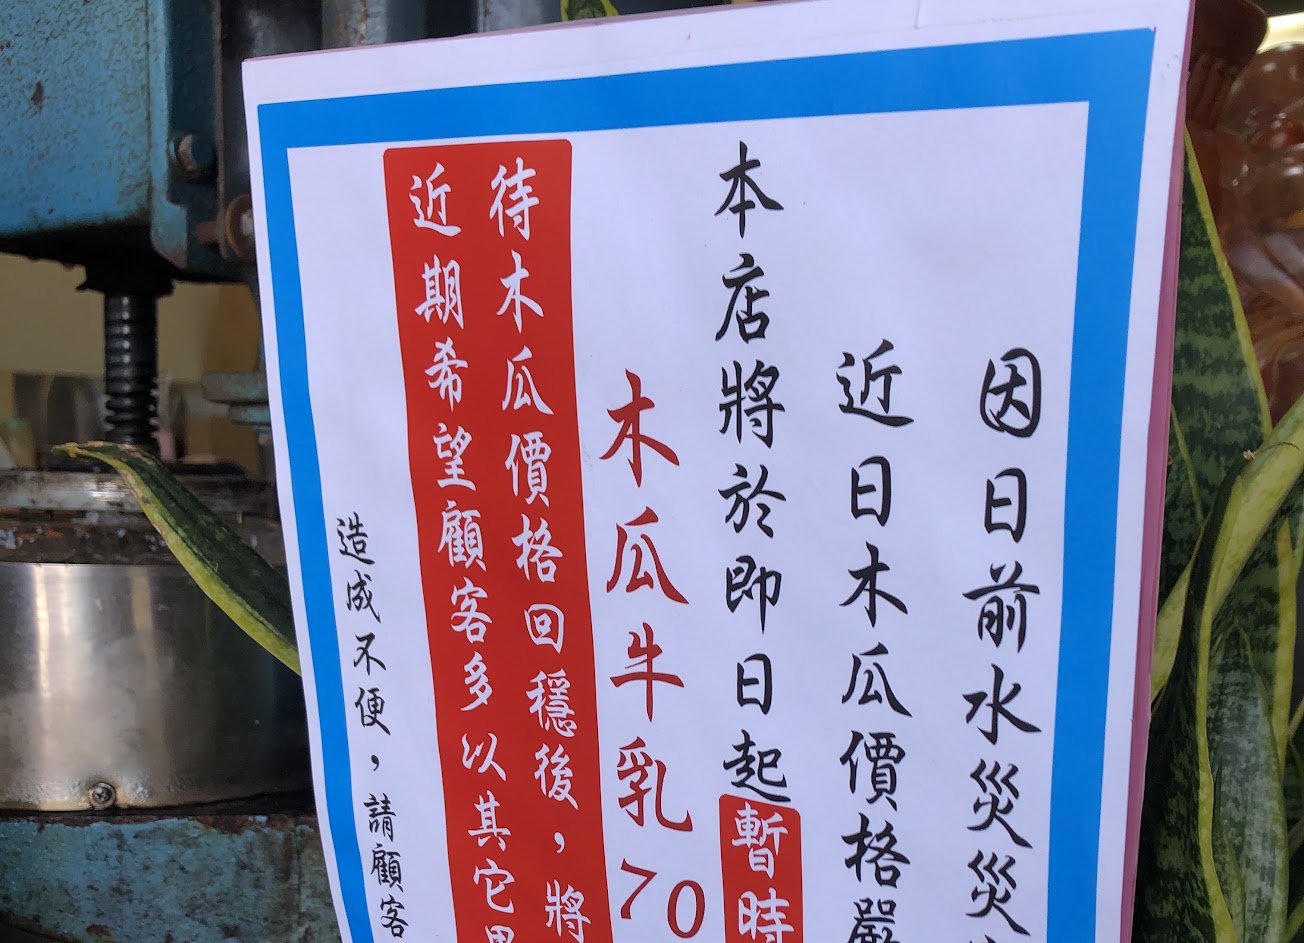 因日前水災災
近日木瓜價格嚴
本店將於即日起暫時
木瓜牛乳70
待木瓜價格回穩後，將
近期希望顧客多以其它
造成不便，請顧客